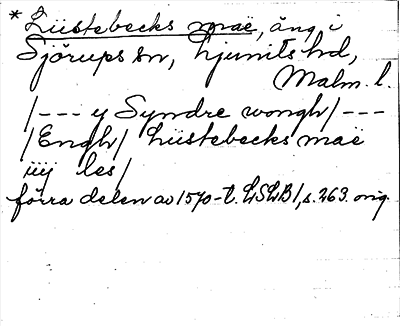 * Lüstebecks maë, äng i
Sjörups sn, Ljunits hd,
Malm. l.
/--- y Syndre wongh/---
/Engh/ Lüstebecks maë
iiij les/
förra delen av 1570-t. LSLB1, s. 263. orig.